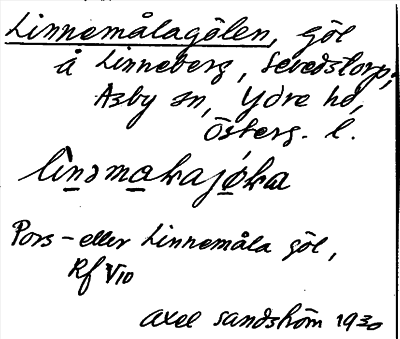 Linnemålagölen, göl
å Linneberg, Sevedstorp,
Asby sn, Ydre hd,
Österg. l.
Pors- eller Linnemåla göl,
Rf VIO
Axel Sandström 1930